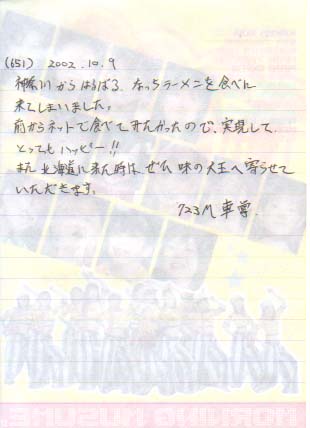 (651) 2002.10.9
神奈川からはるばる、なっちラーメンを食べに
来てしまいました。
前からネットで食べてみたかったので、実現して
とってもハッピー!!
また北海道に来た時は、ぜひ味の大王へ寄らせて
いただきます。
723M
MORNING MUSUME。